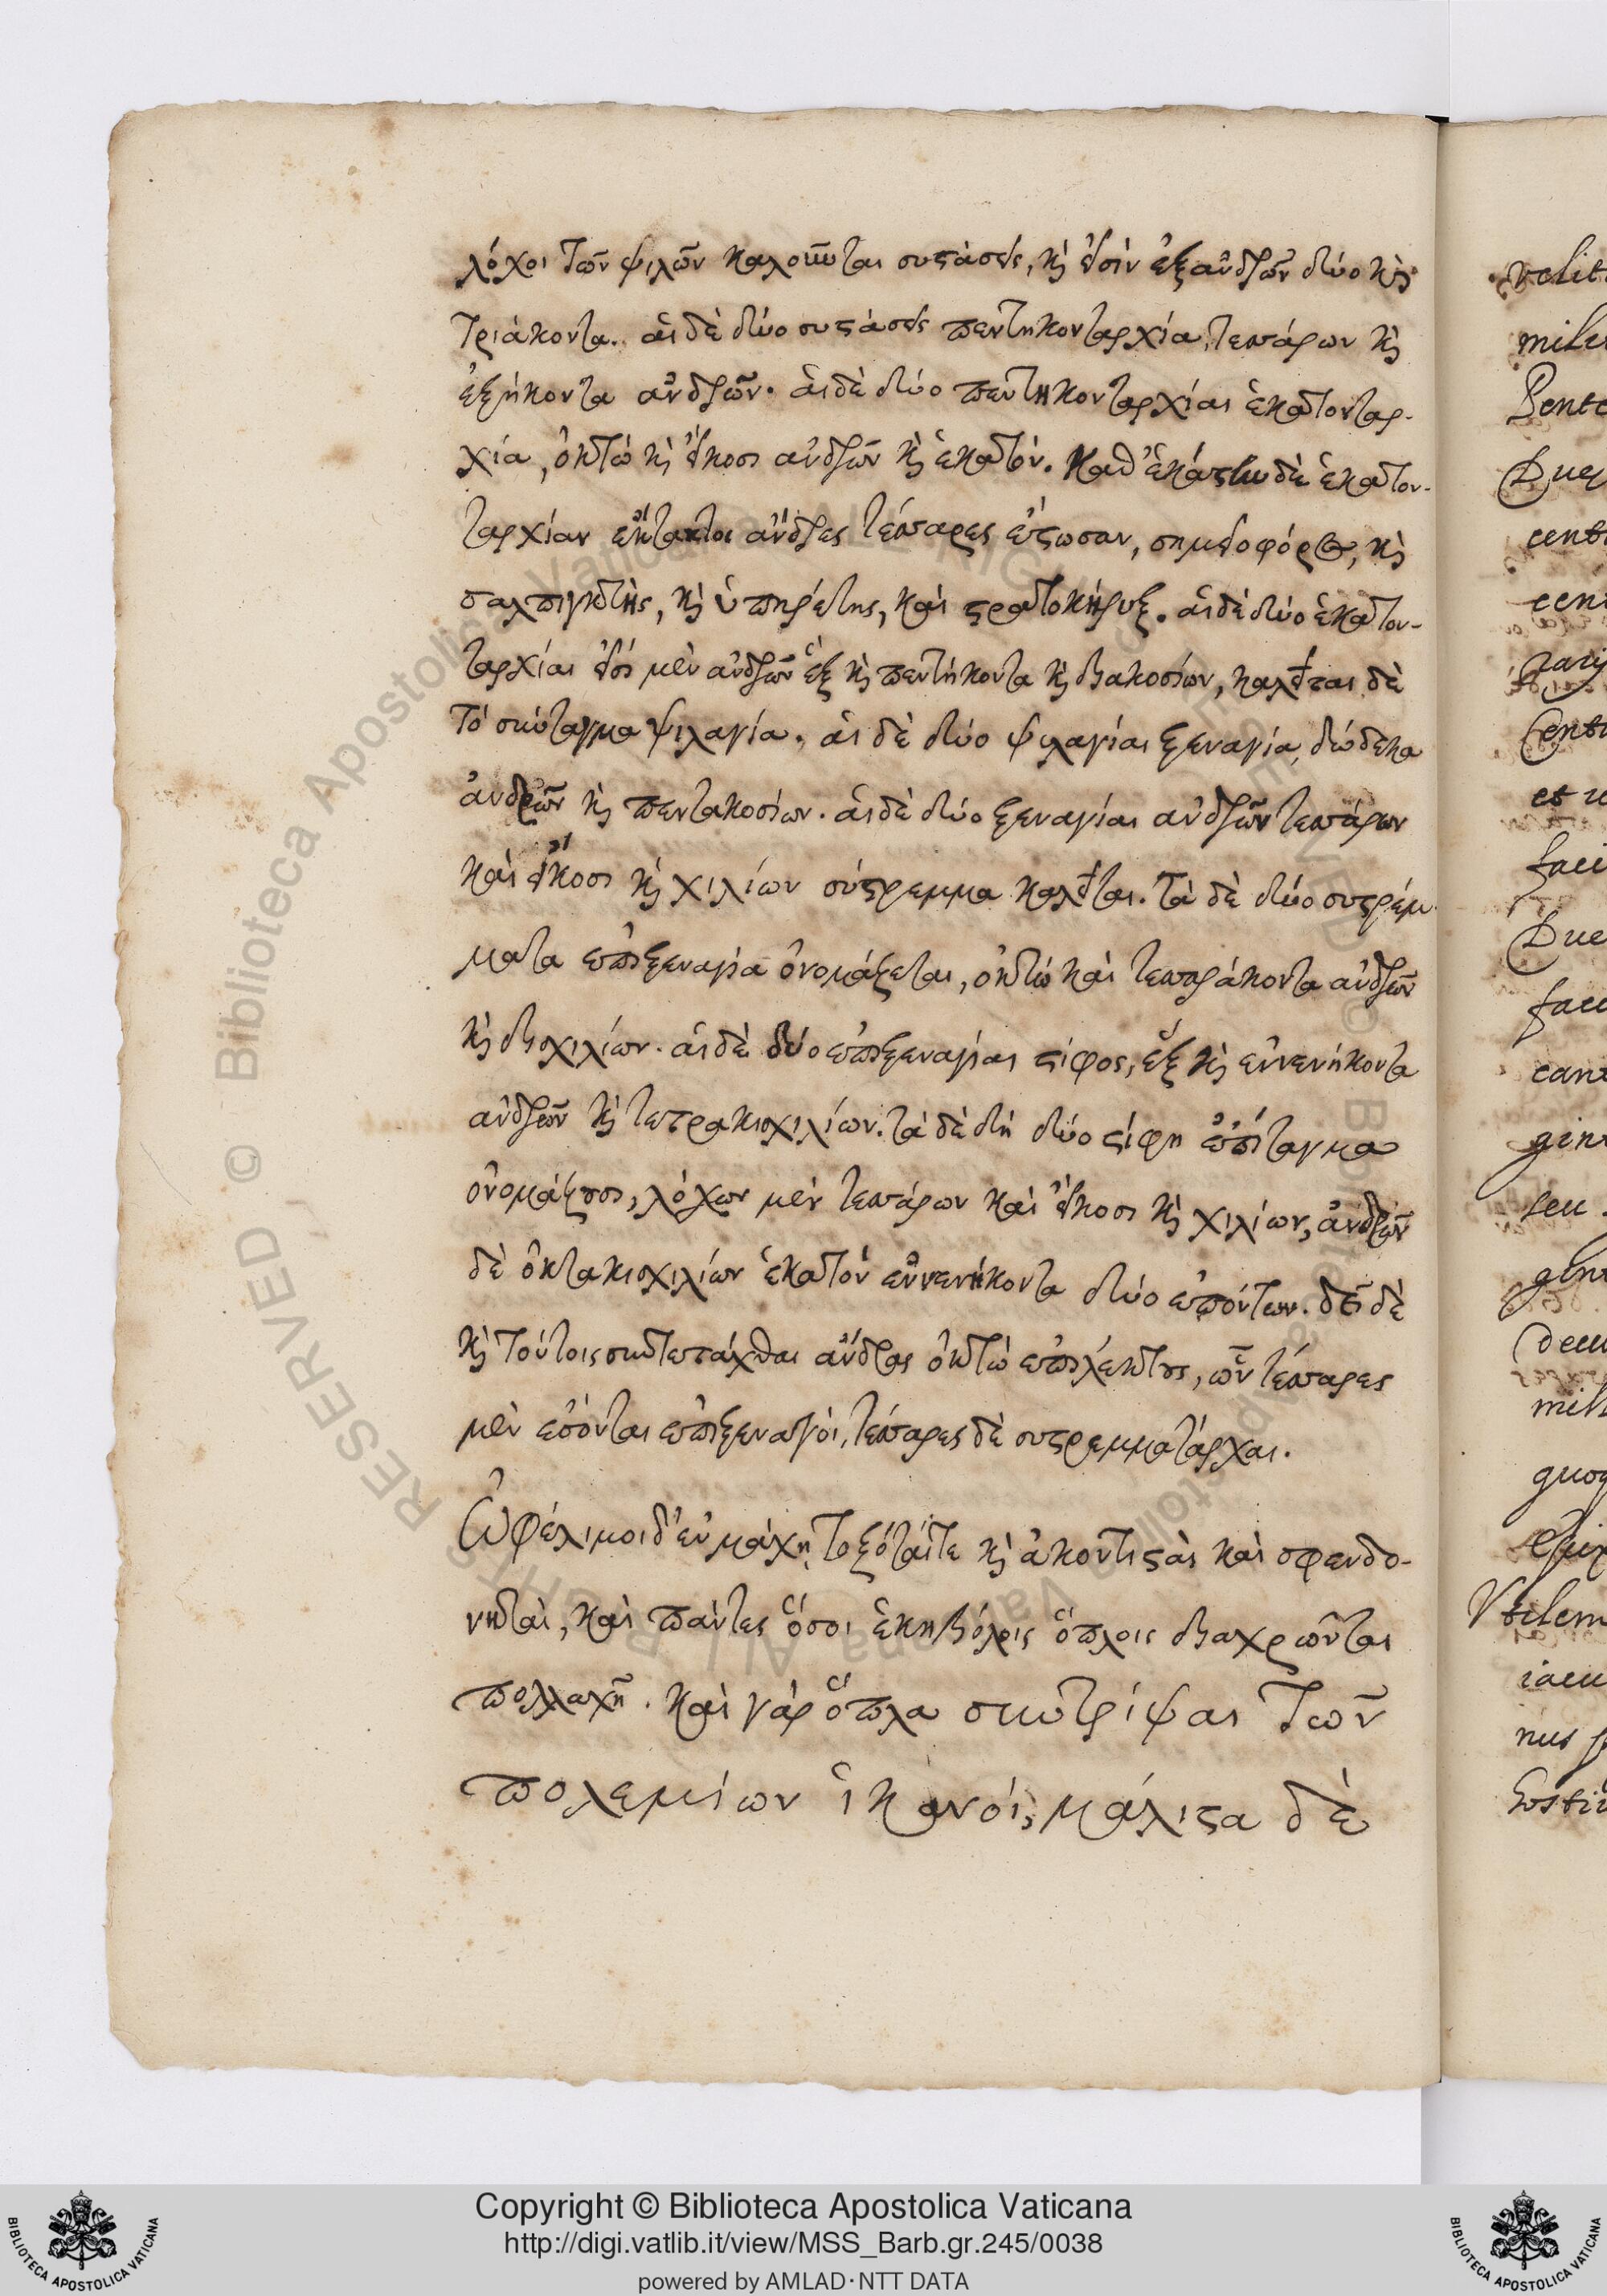 λόχοι τῶν ψιλῶν καλοῦνται συστάσεις, καὶ εἰσὶν ἐξ ἀνδρῶν δύο καὶ
τριάκοντα. αἱ δὲ δύο συστάσεις πεντηκονταρχία, τεσσάρων καὶ
ἑξήκοντα ἀνδρῶν. αἱ δὲ δύο πεντηκονταρχίαι ἑκατονταρ-
χία, ὀκτὼ καὶ εἴκοσι ἀνδρῶν καὶ ἑκατόν. καθ' ἑκάστην δὲ ἑκατον-
ταρχίαν ἔκτακτοι ἄνδρες τέσσαρες ἔστωσαν, σημειοφόρος, καὶ
σαλπιγκτὴς, καὶ ὑπηρέτης, καὶ στρατοκήρυξ. αἱ δὲ δύο ἑκατον-
ταρχίαι εἰσὶ μὲν ἀνδρῶν ἓξ καὶ πεντήκοντα καὶ διακοσίων, καλεῖται δὲ
τὸ σύνταγμα ψιλαγία. αἱ δὲ δύο ψιλαγίαι ξεναγία, δώδεκα
ἀνδρῶν καὶ πεντακοσίων. αἱ δὲ δύο ξεναγίαι ἀνδρῶν τεσσάρων
καὶ εἴκοσι καὶ χιλίων σύστρεμμα καλεῖται. τὰ δὲ δύο συστρέμ-
ματα ἐπιξεναγία ὀνομάζεται, ὀκτὼ καὶ τεσσαράκοντα ἀνδρῶν
καὶ δισχιλίων. αἱ δὲ δύο ἐπιξεναγίαι στίφος, ἓξ καὶ ἐννενήκοντα
ἀνδρῶν καὶ τετρακισχιλίων. τὰ δὲ δὴ δύο στίφη ἐπίταγμα
ὀνομάζουσι, λόχων μὲν τεσσάρων καὶ εἴκοσι καὶ χιλίων, ἀνδρῶν
δὲ ὀκτακισχιλίων ἑκατὸν ἐννενήκοντα δύο ἐπόντων. δεῖ δὲ
καὶ τούτοις συντετάχθαι ἄνδρας ὀκτὼ ἐπιλέκτους, ὧν τέσσαρες
μὲν ἔσονται ἐπιξεναγοὶ, τέσσαρες δὲ συστρεμματάρχαι.
Ὠφέλιμοι δ' ἐν μάχῃ, τοξόται τε καὶ ἀκοντισταὶ καὶ σφενδο-
νηταὶ, καὶ πάντες ὅσοι ἑκηβόλοις ὅπλοις διαχρῶνται
πολλαχῆ. καὶ γὰρ ὅπλα συντρίψαι τῶν
πολεμίων ἱκανοὶ, μάλιστα δὲ
Copyright © Biblioteca Apostolica Vaticana
http://digi.vatlib.it/view/MSS_Barb.gr.245/0038
powered by AMLAD·NTT DATA
BIBLIOTECA APOSTOLICA VATICANA
BIBLIOTECA APOSTOLICA VATICANA